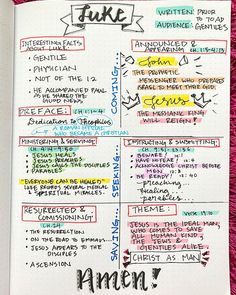 Luke
WRITTEN: PRIOR
TO 70 AD
AUDIENCE:
GENTILES
INTERESTING FACTS
ABOUT LUKE:
- GENTILE
- PHYSICIAN
- NOT OF THE 12
- HE ACCOMPANIED PAUL
& HE SHARED THE
GOOD NEWS
PREFACE: CH. 1:1-4
Dedication to Theophilus
A ROMAN OFFICIAL
WHO BECAME A CHRISTIAN
MINISTERING & SERVING
JESUS HEALS
JESUS PREACHES
JESUS & THE DISCIPLES
PARABLES
"EVERYONE CAN BE HEALED"
LUKE RECORDS SEVERAL MEDICAL
& SPIRITUAL MIRACLES.
RESURRECTED &
COMMISSIONING
CH. 24
- THE RESURRECTION
- ON THE ROAD TO EMMAUS...
- JESUS APPEARS TO THE
DISCIPLES
- ASCENSION
COMING...
SEEKING...
SAVING...
ANNOUNCED &
APPEARING
John
THE PROPHETIC
MESSENGER WHO PREPARES
ISRAEL TO MEET THEIR GOD
Jesus
THE MESSIANIC KING
WILL REIGN!
INSTRUCTING & SUBMITTING
BEWARE!
ACKNOWLEDGE CHRIST BEFORE
MEN
BE READY!
preaching
healing
parables...
THEME:
JESUS IS THE IDEAL MAN,
WHO COMES TO SAVE
ALL HUMAN KIND,
THE JEWS &
GENTILES ALIKE.
CHRIST AS MAN
AMEN!